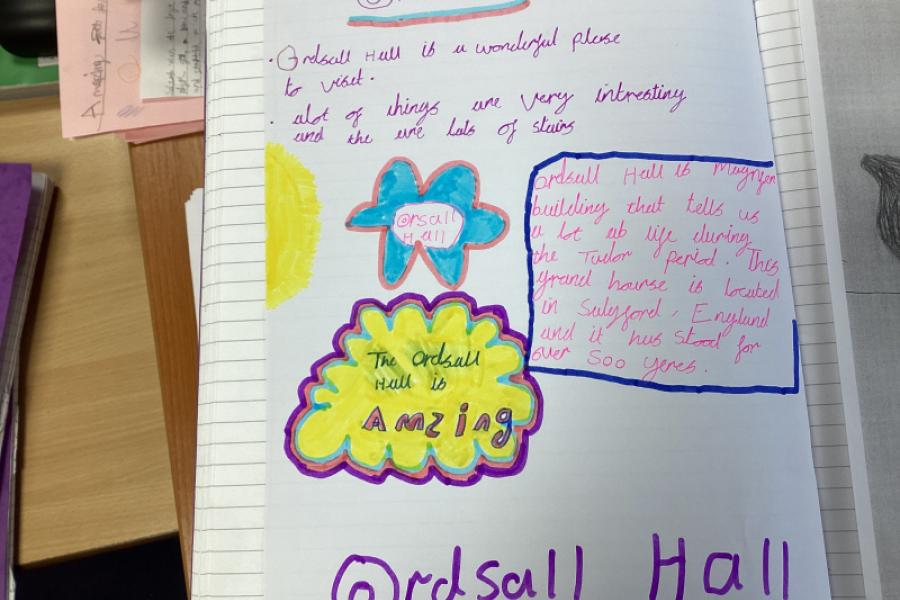 · Ordsall Hall is a wonderful plase
to visit.
· alot of things are very intrestiny
and the are lats of stairs
Orsall
Hall
Ordsall Hall is Magnifen
building that tells us
a lot ab life during
the Tudor period. This
grand hourse is located
in Salyford, England
and it has stood for
over 500 yeres.
The Ordsall
Hall is
Amzing
Ordsall Hall
Amazing